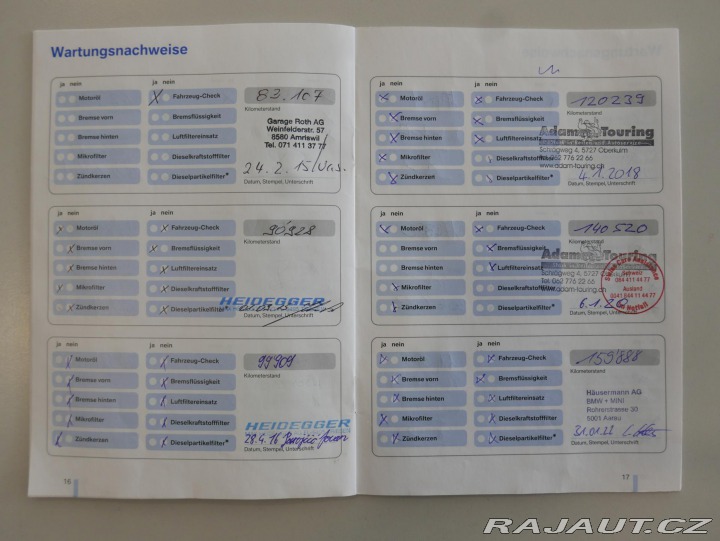 Wartungsnachweise
ja nein
ja nein
Motoröl
Fahrzeug-Check
83.107
Kilometerstand
Bremse vorn
Bremsflüssigkeit
Garage Roth AG
Weinfelderstr. 57
8580 Amriswil
Tel. 071 411 37 77
Bremse hinten
Luftfiltereinsatz
Mikrofilter
Dieselkraftstofffilter
24.2.15
Zündkerzen
Dieselpartikelfilter*
Datum, Stempel, Unterschrift
ja nein
ja nein
Motoröl
Fahrzeug-Check
90'928
Kilometerstand
Bremse vorn
Bremsflüssigkeit
Bremse hinten
Luftfiltereinsatz
Mikrofilter
Dieselkraftstofffilter
HEIDEGGER
Zündkerzen
Dieselpartikelfilter*
Datum, Stempel, Unterschrift
ja nein
ja nein
Motoröl
Fahrzeug-Check
99909
Kilometerstand
Bremse vorn
Bremsflüssigkeit
Bremse hinten
Luftfiltereinsatz
Mikrofilter
Dieselkraftstofffilter
HEIDEGGER
28.4.16
Zündkerzen
Dieselpartikelfilter*
Datum, Stempel, Unterschrift
16
ja nein
ja nein
Motoröl
Fahrzeug-Check
120239
Kilometerstand
Bremse vorn
Bremsflüssigkeit
Adam Touring
Bremse hinten
Luftfiltereinsatz
Schlogweg 4, 5727 Oberkulm
Mikrofilter
Dieselkraftstofffilter
Tel. 062 776 22 66
www.adam-touring.ch
4.1.2018
Zündkerzen
Dieselpartikelfilter*
Datum, Stempel, Unterschrift
ja nein
ja nein
Motoröl
Fahrzeug-Check
140520
Kilometerstand
Bremse vorn
Bremsflüssigkeit
Adam Touring
Bremse hinten
Luftfiltereinsatz
Schlogweg 4, 5727
Tel. 062 776 22 66
www.adam-touring.ch
Schweiz
084 411 44 77
Ausland
0041 844 11 44 77
Mikrofilter
Dieselkraftstofffilter
6.1.20
Zündkerzen
Dieselpartikelfilter*
Datum, Stempel, Unterschrift
ja nein
ja nein
Motoröl
Fahrzeug-Check
159'888
Kilometerstand
Bremse vorn
Bremsflüssigkeit
Häusermann AG
BMW + MINI
Rohrerstrasse 30
5001 Aarau
Bremse hinten
Luftfiltereinsatz
Mikrofilter
Dieselkraftstofffilter
Zündkerzen
Dieselpartikelfilter*
Datum, Stempel, Unterschrift
17
RAJAUT.CZ